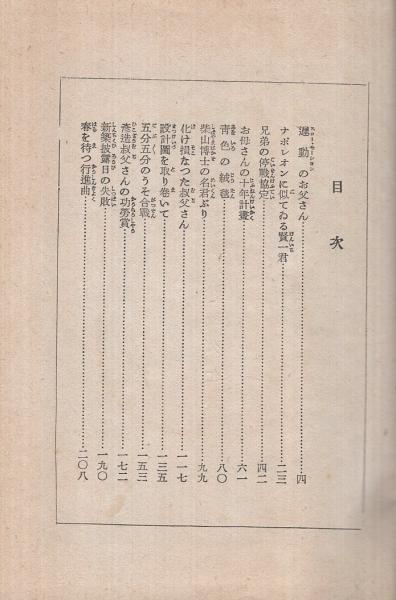 目次
遲動のお父さん……四
ナポレオンに似てゐる賢一君……二三
兄弟の停戰協定……四二
お母さんの十年計畫……六一
靑色の絨毯……八〇
柴山博士の名君ぶり……九九
化け損なつた叔父さん……一一七
設計圖を取り卷いて……一三五
五分五分のうそ合戰……一五三
彥造叔父さんの功勞賞……一七二
新築披露日の失敗……一九〇
春を待つ行進曲……二〇八